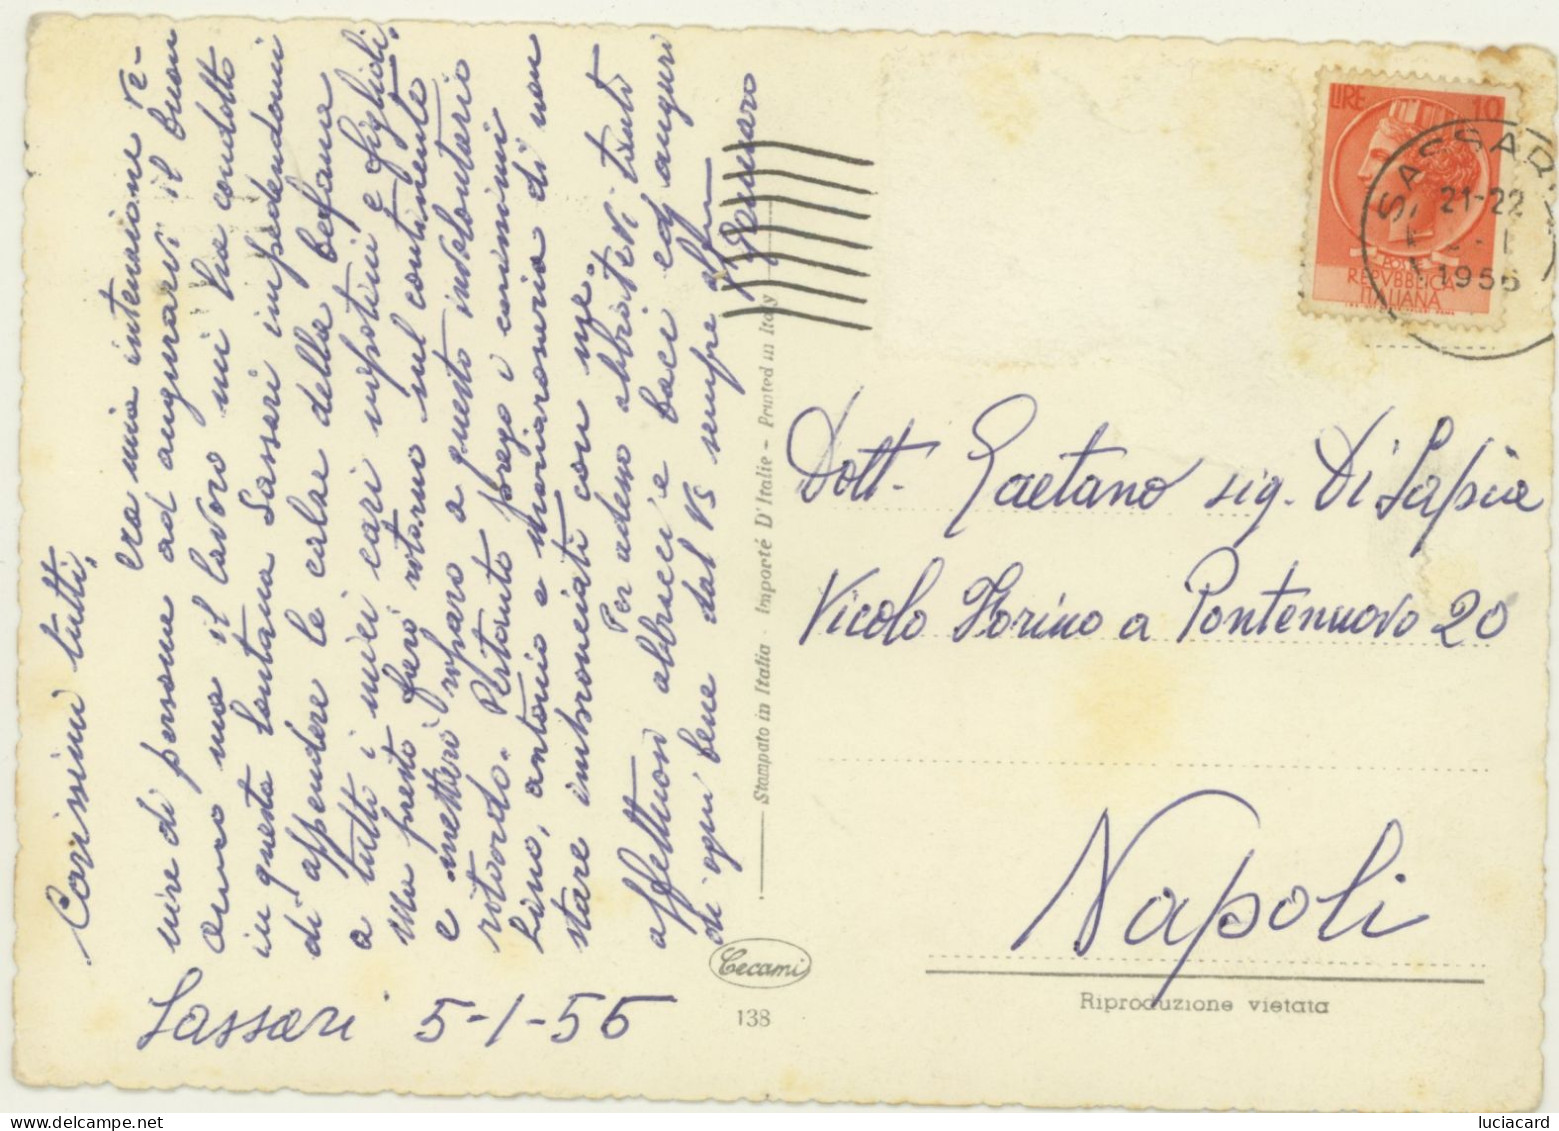 Carissimi tutti,
era mia intenzione ve-
nire di persona ad augurarvi il buon
anno ma il lavoro mi ha condotto
in questa lontana Sassari impedendomi
di appendere le calze della befana
a tutti i miei cari nipotini e figlioli.
Ma presto farò ritorno sul continente
e metterò riparo a questo involontario
ritardo. Pertanto prego i carissimi
Lino, Antonio e Mariarosaria di non
stare imbronciati con me.
Per adesso abbiatevi tanti
affettuosi abbracci e baci ed auguri
di ogni bene dal Vs sempre aff.mo
Gennaro
Sassari 5-1-56
Stampato in Italia - Importé D'Italie - Printed in Italy
Cecami
138
LIRE 10
POSTE
REPVBBLICA
ITALIANA
SASSARI
21-22
1956
Dott. Gaetano sig. Di Sapia
Vicolo Zorino a Pontenuovo 20
Napoli
Riproduzione vietata
luciacard